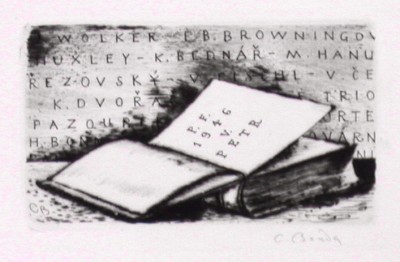 WOLKER E.B. BROWNING DV
HUXLEY - K. BEDNÁŘ - M. HANU
ŘEZOVSKÝ - V. ČE
K. DVOŘÁ TRIO
PAZOUR RTE
H. BO VÁRN
P.F.
1946
V.
PETR
CB.
C. Bouda